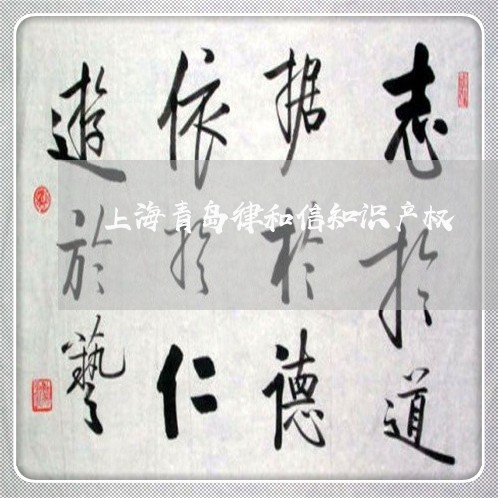 志於道
据於德
依於仁
遊於藝
上海青岛律和信知识产权